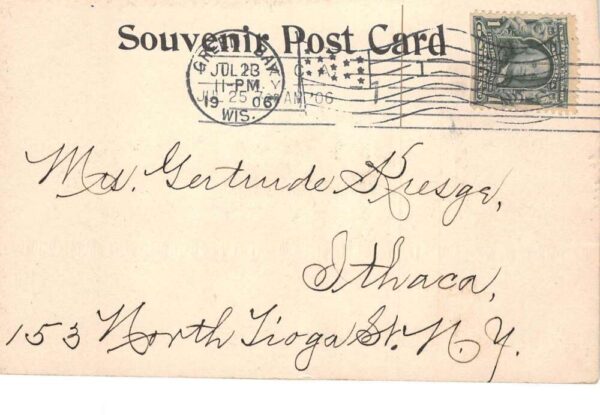 Souvenir Post Card
GREEN BAY
JUL 23
11-PM
19 06
WIS.
JUL 25 AM 06
1
1
Mrs. Gertrude Kresge,
Ithaca,
153 North Tioga St. N.Y.